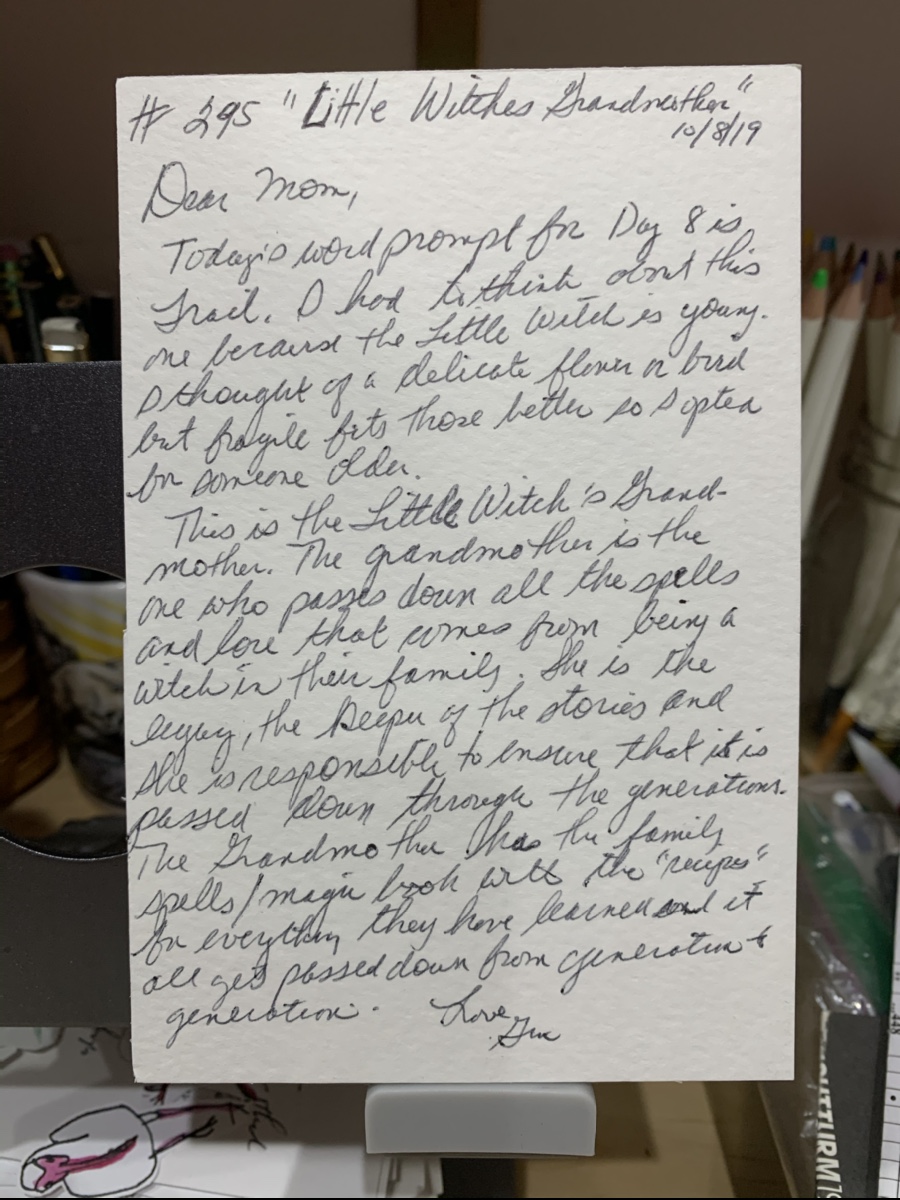 # 295 "Little Witches Grandmother"
10/8/19
Dear Mom,
Today's word prompt for Day 8 is
Frail. I had to think about this
one because the Little Witch is young.
I thought of a delicate flower or bird
but fragile fits those better so I opted
for someone older.
This is the Little Witch's Grand-
mother. The grandmother is the
one who passes down all the spells
and lore that comes from being a
witch in their family. She is the
legacy, the keeper of the stories and
she is responsible to ensure that it is
passed down through the generations.
The Grandmother has the family
spells/magic book with the "recipes"
for everything they have learned and it
all gets passed down from generation to
generation.
Love,